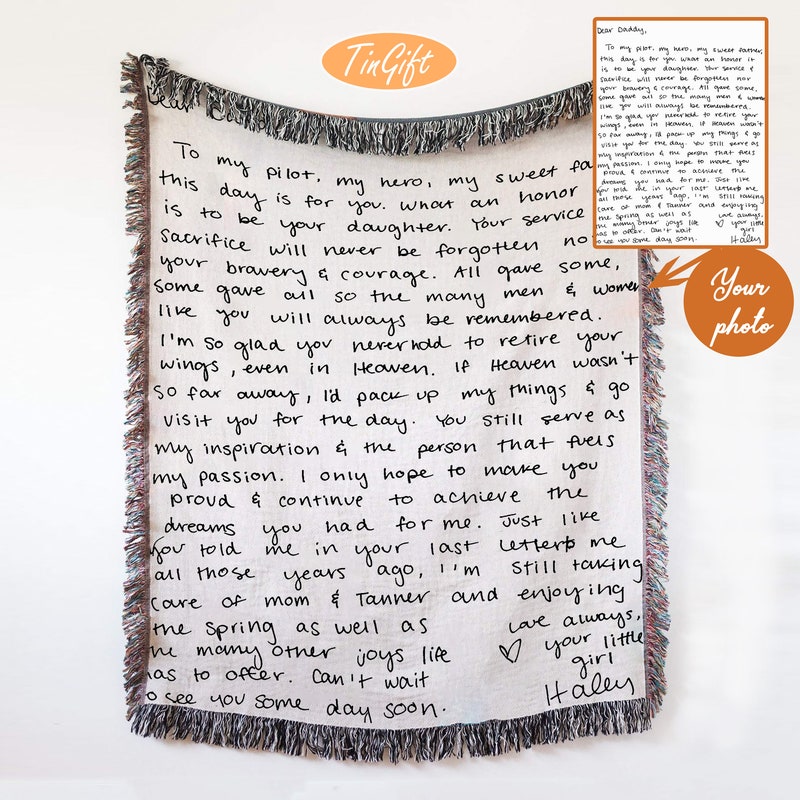 TinGift
Dear Daddy,
To my pilot, my hero, my sweet father,
this day is for you. What an honor it
is to be your daughter. Your service &
sacrifice will never be forgotten nor
your bravery & courage. All gave some,
some gave all so the many men & women
like you will always be remembered.
I'm so glad you never hold to retire your
wings, even in Heaven. If Heaven wasn't
so far away, I'd pack up my things & go
visit you for the day. You still serve as
my inspiration & the person that fuels
my passion. I only hope to make you
proud & continue to achieve the
dreams you had for me. Just like
you told me in your last letter me
all those years ago, I'm still taking
care of mom & Tanner and enjoying
the spring as well as love always,
the many other joys life ♡ your little
has to offer. Can't wait girl
to see you some day soon. Haley
Your
photo
Dear
To my pilot, my hero, my sweet fa
this day is for you. What an honor
is to be your daughter. Your service
sacrifice will never be forgotten no
your bravery & courage. All gave some,
some gave all so the many men & women
like you will always be remembered.
I'm so glad you never hold to retire your
wings, even in Heaven. If Heaven wasn't
so far away, I'd pack up my things & go
visit you for the day. You still serve as
my inspiration & the person that fuels
my passion. I only hope to make you
proud & continue to achieve the
dreams you had for me. Just like
you told me in your last me
all those years ago, I'm still taking
care of mom & Tanner and enjoying
the spring as well as love always,
he many other joys life ♡ your little
has to offer. Can't wait girl
o see you some day soon. Haley